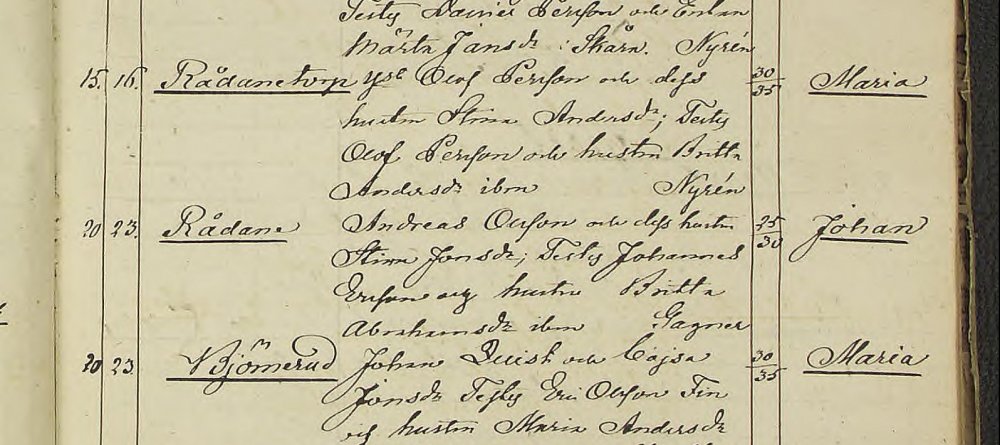 Testes Daniel Persson och Enkan
Märta Jansdr i Skåra. Nyrén
15. 16. Rådanetorp Olof Persson och dess 30/35 Maria
hustru Stina Andersdr; Testes
Olof Persson och hustru Britta
Andersdr ibm Nyrén
20 23. Rådane Andreas Olsson och dess hustru 25/30 Johan
Stina Jonsdr; Testes Johannes
Ersson och hustru Britta
Abrahamsdr ibm Gagner
20 23. Björnerud Johan Quist och Cajsa 30/35 Maria
Jonsdr Testes Eric Olsson Fin
och hustru Maria Andersdr